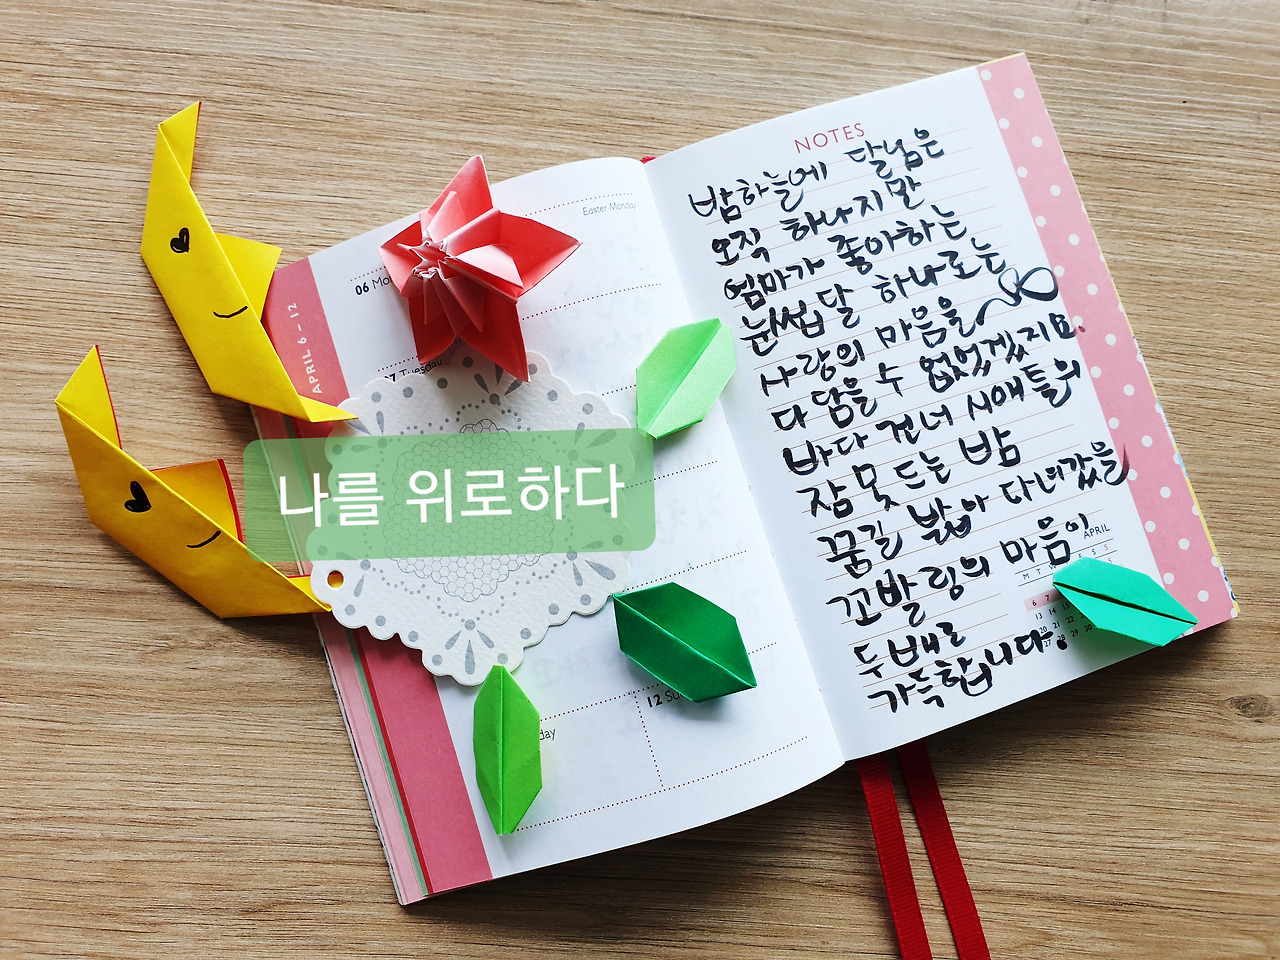 APRIL 6 - 12
Easter Monday
06 Mo
07 Tuesday
나를 위로하다
12 Su
day
NOTES
밤하늘에 달님은
오직 하나지만
엄마가 좋아하는
눈썹달 하나로는
사랑의 마음을
다 담을 수 없었겠지요.
바다 건너 시애틀의
잠 못 드는 밤
꿈길 밟아 다녀갔을
꼬발링의 마음이
두배로
가득합니다.
APRIL
M T W T F S S
6 7
13 14
20 21 22
27 28 29 30